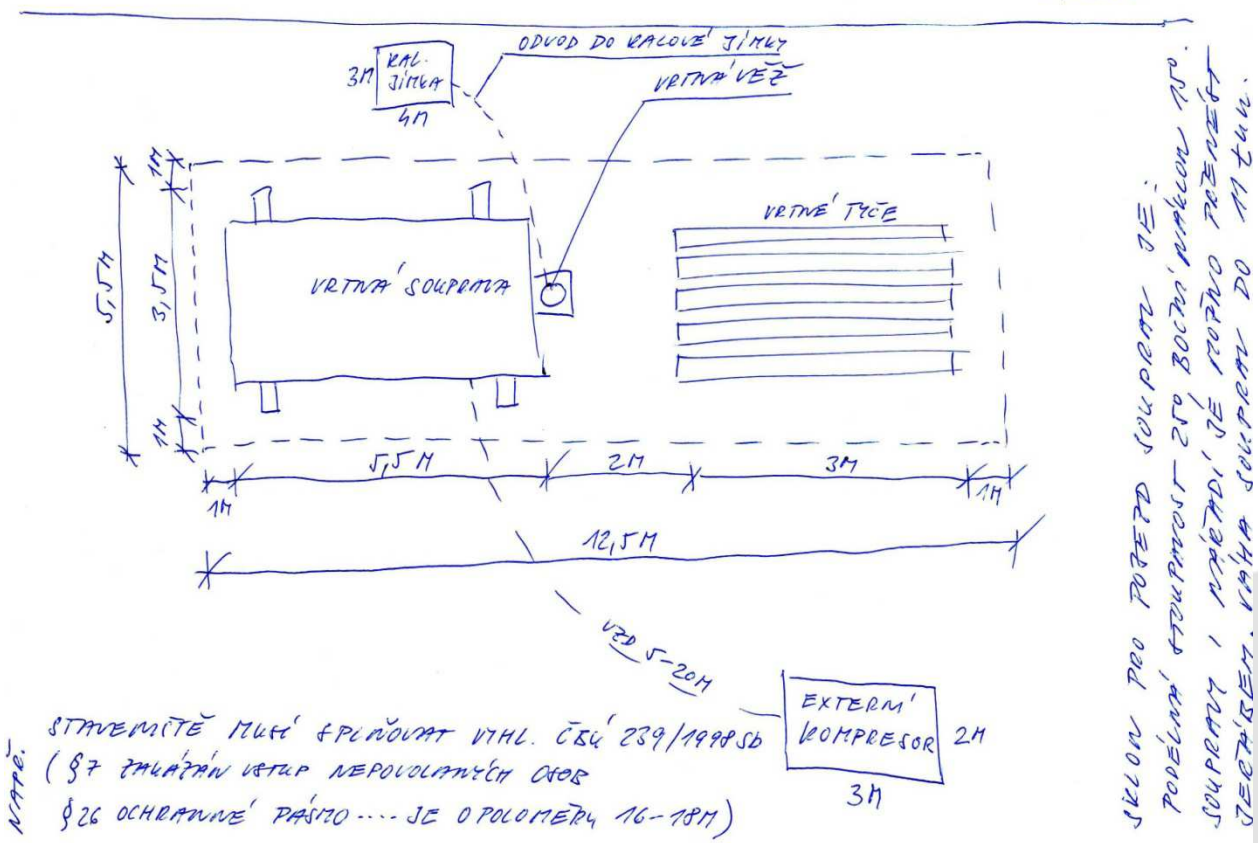 ODVOD DO KALOVÉ JÍMKY
VRTNÁ VĚŽ
KAL.
JÍMKA
3M
4M
1M
5,5M
3,5M
1M
VRTNÁ SOUPRAVA
VRTNÉ TYČE
1M
5,5M
2M
3M
1M
12,5M
VZD 5-20M
EXTERNÍ
KOMPRESOR
2M
3M
NAPŘ.
STAVENIŠTĚ MUSÍ SPLŇOVAT VYHL. ČBÚ 239/1998 Sb
(§7 ZAKÁZÁN VSTUP NEPOVOLANÝCH OSOB
§26 OCHRANNÉ PÁSMO .... JE O POLOMĚRU 16-18M)
SKLON PRO POJEZD SOUPRAV JE:
PODÉLNÁ STOUPAVOST 25° BOČNÍ NÁKLON 15°.
SOUPRAVY I NÁŘADÍ JE MOŽNO PŘENÉST
JEŘÁBEM. VÁHA SOUPRAV DO 11 tun.